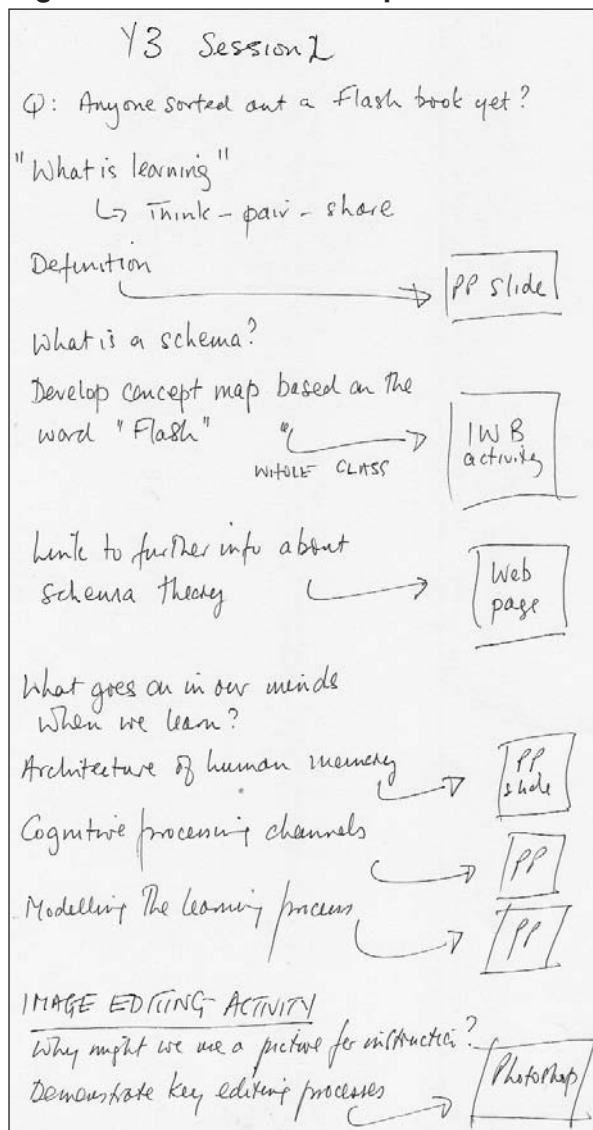 Y3 Session 2
Q: Anyone sorted out a Flash book yet?
"What is learning"
↳ Think - pair - share
Definition
PP slide
What is a schema?
Develop concept map based on the
word "Flash"
WHOLE CLASS
IWB
activity
Link to further info about
schema theory
Web
page
What goes on in our minds
when we learn?
Architecture of human memory
PP
slide
Cognitive processing channels
PP
Modelling the learning process
PP
IMAGE EDITING ACTIVITY
Why might we use a picture for instruction?
Demonstrate key editing processes
Photoshop